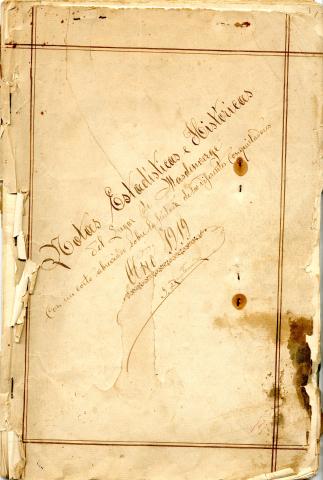 Notas Estadísticas e Históricas
del Lugar de Masdenverge
Con un corto resumen sobre la historia de los infantes Conquistadores
Año 1919